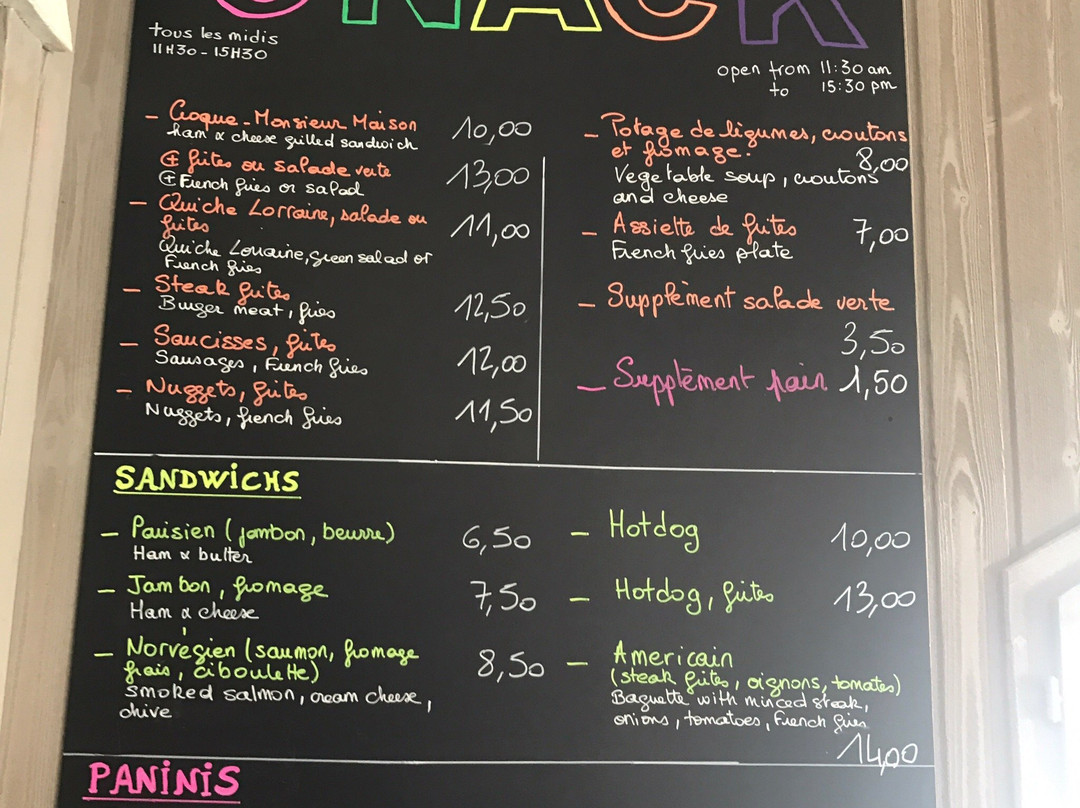 SNACK
tous les midis
11H30 - 15H30
open from 11:30 am
to 15:30 pm
- Croque-Monsieur Maison 10,00
Ham & cheese grilled sandwich
+ frites ou salade verte 13,00
+ French fries or salad
- Quiche Lorraine, salade ou
frites 11,00
Quiche Lorraine, green salad or
French fries
- Steak frites 12,50
Burger meat, fries
- Saucisses, frites 12,00
Sausages, French fries
- Nuggets, frites 11,50
Nuggets, french fries
- Potage de légumes, croutons
et fromage. 8,00
Vegetable soup, croutons
and cheese
- Assiette de frites 7,00
French fries plate
- Supplément salade verte
3,50
- Supplément pain 1,50
SANDWICHS
- Parisien (jambon, beurre) 6,50
Ham & butter
- Jambon, fromage 7,50
Ham & cheese
- Norvégien (saumon, fromage
frais, ciboulette) 8,50
Smoked salmon, cream cheese,
chive
- Hotdog 10,00
- Hotdog, frites 13,00
- Americain
(steak frites, oignons, tomates)
Baguette with minced steak,
onions, tomatoes, French fries
14,00
PANINIS